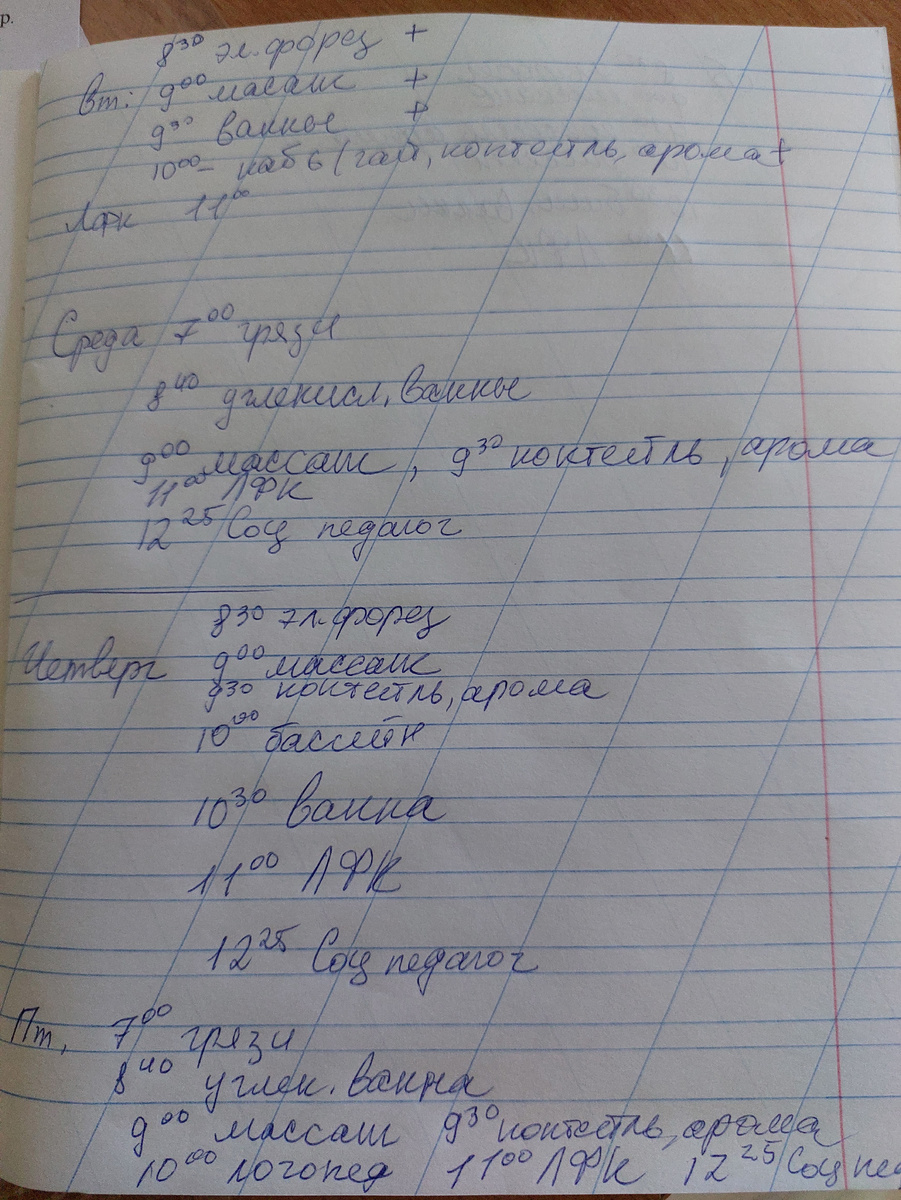 р.
8³⁰ эл.форез +
Вт: 9⁰⁰ масаж +
9³⁰ ванные +
10⁰⁰ - каб 6 (гал, коктейль, арома +
Лфк 11⁰⁰
Среда 7⁰⁰ грязи
8⁴⁰ углекисл. ванные
9⁰⁰ массаж, 9³⁰ коктейль, арома
11⁰⁰ ЛФК
12²⁵ Соц педагог
8³⁰ эл.форез
Четверг 9⁰⁰ массаж
9³⁰ коктейль, арома
10⁰⁰ бассейн
10³⁰ ванна
11⁰⁰ ЛФК
12²⁵ Соц педагог
Пт, 7⁰⁰ грязи
8⁴⁰ углек. ванна
9⁰⁰ массаж 9³⁰ коктейль, арома
10⁰⁰ логопед 11⁰⁰ ЛФК 12²⁵ Соц пед